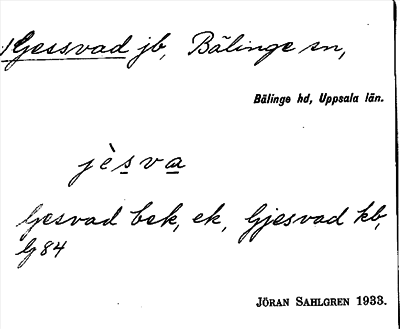 Gessvad jb, Bälinge sn,
Bälinge hd, Uppsala län.
jèsva
Gesvad bek, ek, Gjesvad kb,
G 84
JÖRAN SAHLGREN 1933.